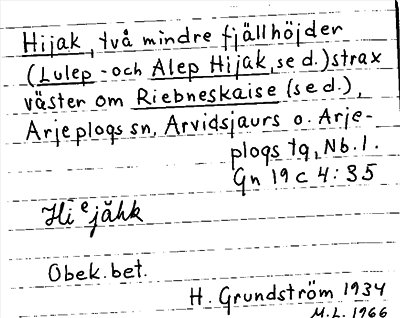 Hijak, två mindre fjällhöjder
(Lulep - och Alep Hijak, se d.) strax
väster om Riebneskaise (se d.),
Arjeplogs sn, Arvidsjaurs o. Arje-
plogs tg, Nb. l.
Gn 19 C 4:35
Hiᵉjåhk
Obek. bet.
H. Grundström 1934
M.L. 1966